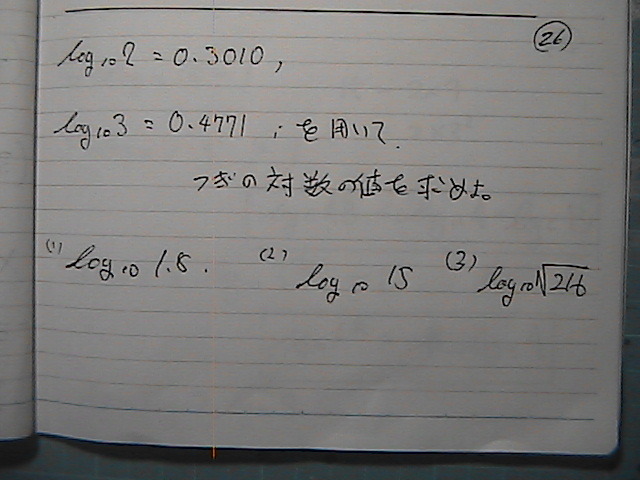 26
log₁₀2 = 0.3010,
log₁₀3 = 0.4771 ; を用いて.
つぎの対数の値を求めよ。
(1) log₁₀ 1.8. (2) log₁₀ 15 (3) log₁₀√216